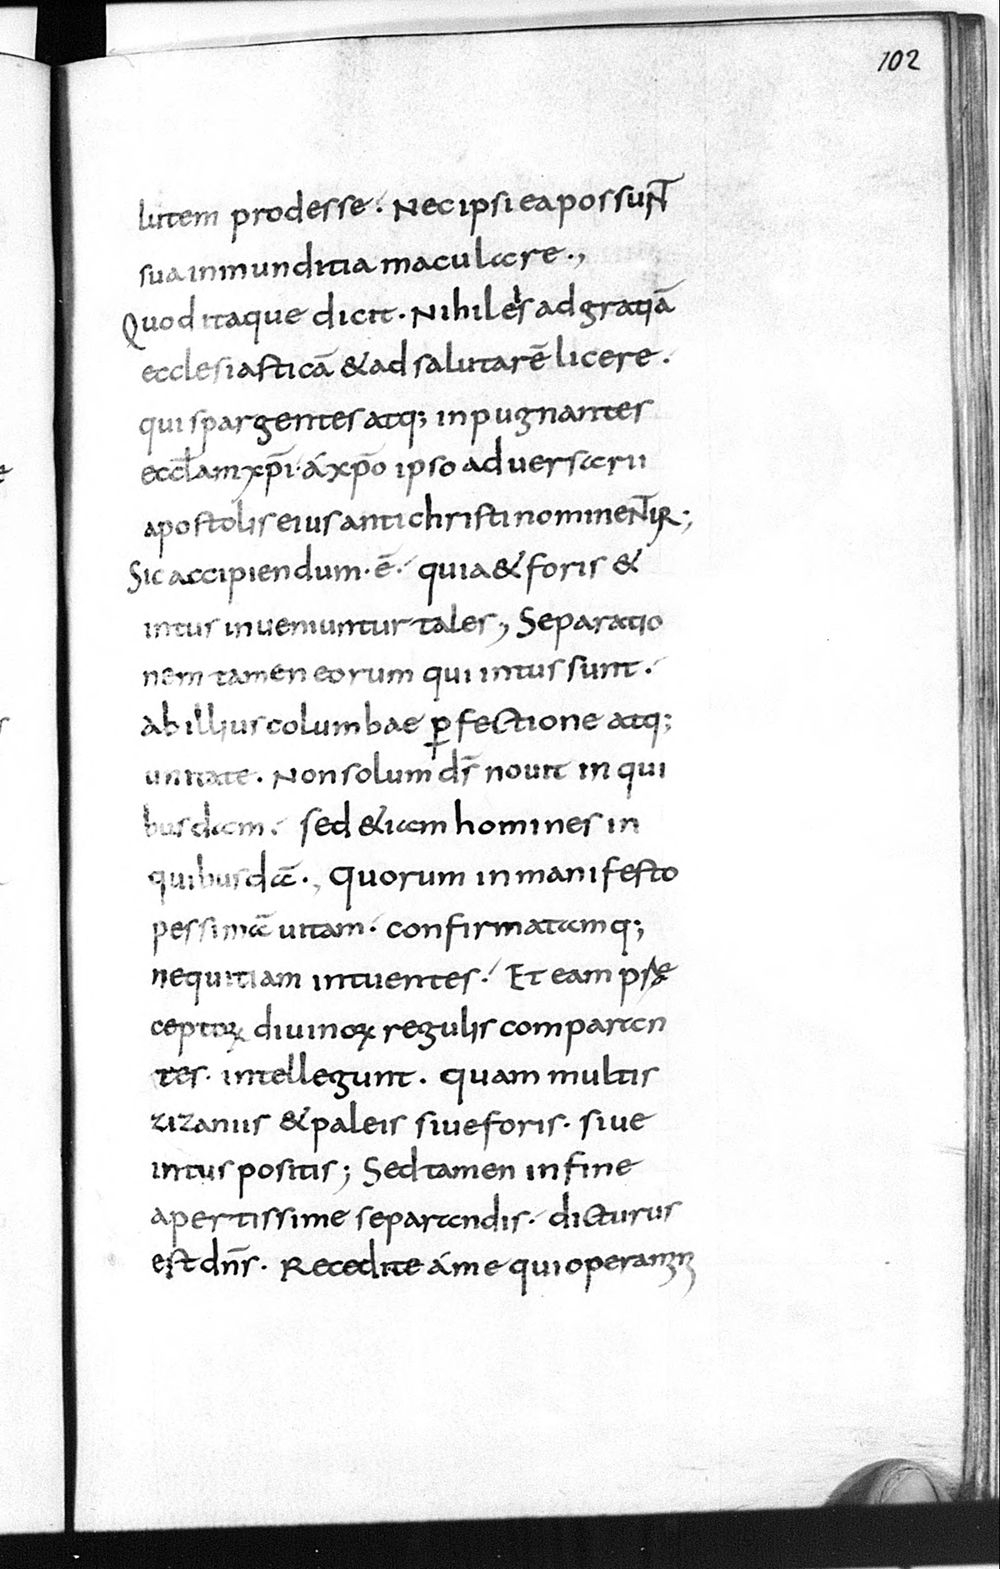 102
lutem prodesse. Nec ipsi ea possunt
sua inmunditia maculare.,
Quod itaque dicit. Nihil eis ad gratiā
ecclesiasticā & ad salutarē licere.
qui spargentes atq; inpugnantes
eccl̄am xp̄i. á xp̄o ipso aduersarii
apostolis eius antichristi nominentur;
Sic accipiendum. ē. quia & foris &
intus inueniuntur tales; Separatio
nem tamen eorum qui intus sunt.
ab illius columbae ꝑfectione atq;
unitate. Non solum d̄s nouit in qui
busdam. sed &iam homines in
quibusdā., Quorum in manifesto
pessimā uitam. confirmatamq;
nequitiam intuentes. Et eam prae
ceptoꝝ diuinoꝝ regulis comparan
tes. intellegunt. quam multis
zizaniis & paleis siue foris. siue
intus positis; Sed tamen in fine
apertissime separandis. dicturus
est dn̄s. Recedite á me qui operamini